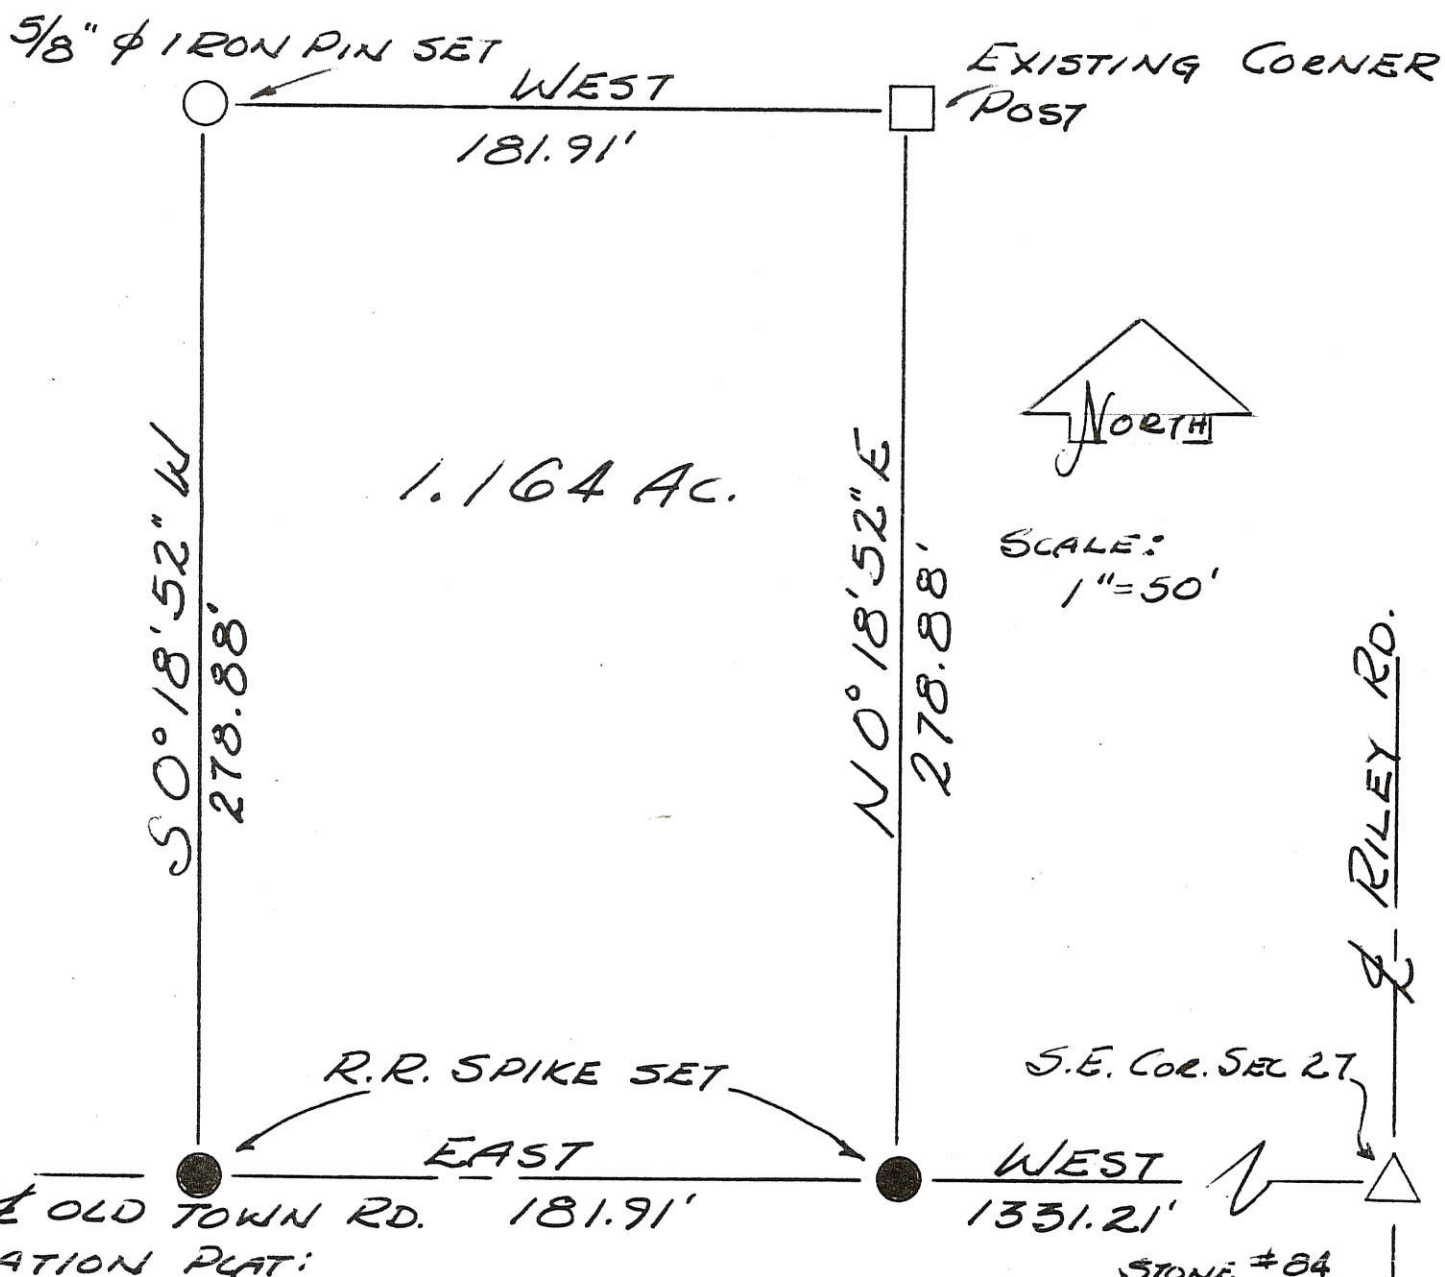 5/8" ⌀ IRON PIN SET
EXISTING CORNER
POST
WEST
181.91'
NORTH
S 0° 18' 52" W
278.88'
1.164 AC.
N 0° 18' 52" E
278.88'
SCALE:
1"=50'
℄ RILEY RD.
R.R. SPIKE SET
S.E. COR. SEC 27
EAST
181.91'
WEST
1331.21'
℄ OLD TOWN RD.
ATION PLAT:
STONE #84